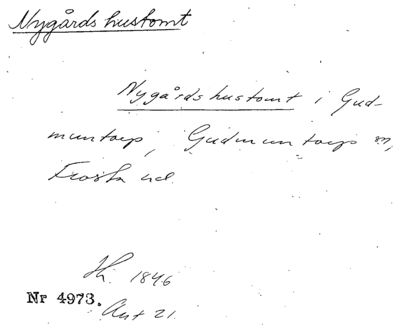 Nygårds hustomt
Nygårds hustomt i Gud-
muntorp, Gudmuntorps sn,
Frosta hd.
1846
Nr 4973.
Aut 21.